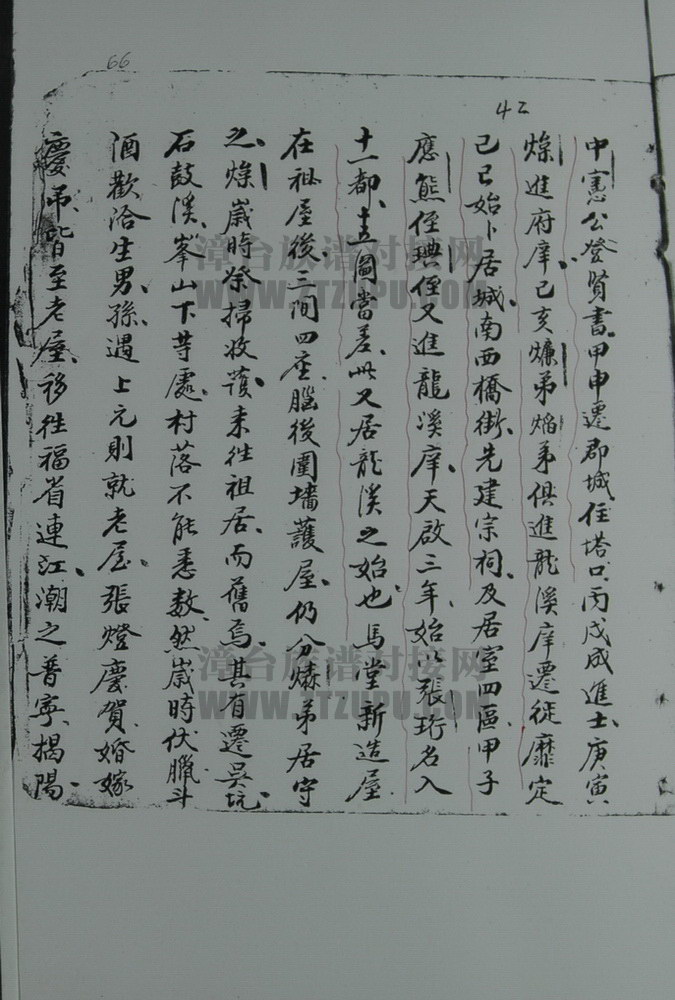 66
42
中憲公登賢書甲申遷郡城住塔口丙戌成進士庚寅
燥進府庠己亥燫弟焰弟俱進龍溪庠遷徙靡定
己巳始卜居城南西橋街先建宗祠及居室四區甲子
應熊侄琠侄又進龍溪庠天啟三年始以張珩名入
十一都十五圖當差此又居龍溪之始也馬堂新造屋
在祖屋後三間四座腦後圍墻護屋仍分燐弟居守
之燥歲時祭掃收護來往祖居而舊焉其有遷吳坑
石鼓溪峯山下等處村落不能悉数然歲時伏臘斗
酒歡洽生男孫遇上元則就老屋張燈慶賀婚嫁
慶吊皆至老屋移徃福省連江潮之普寧揭陽
漳台族谱对接网
WWW.ZTZUPU.COM
漳台族谱对接网
WWW.ZTZUPU.COM